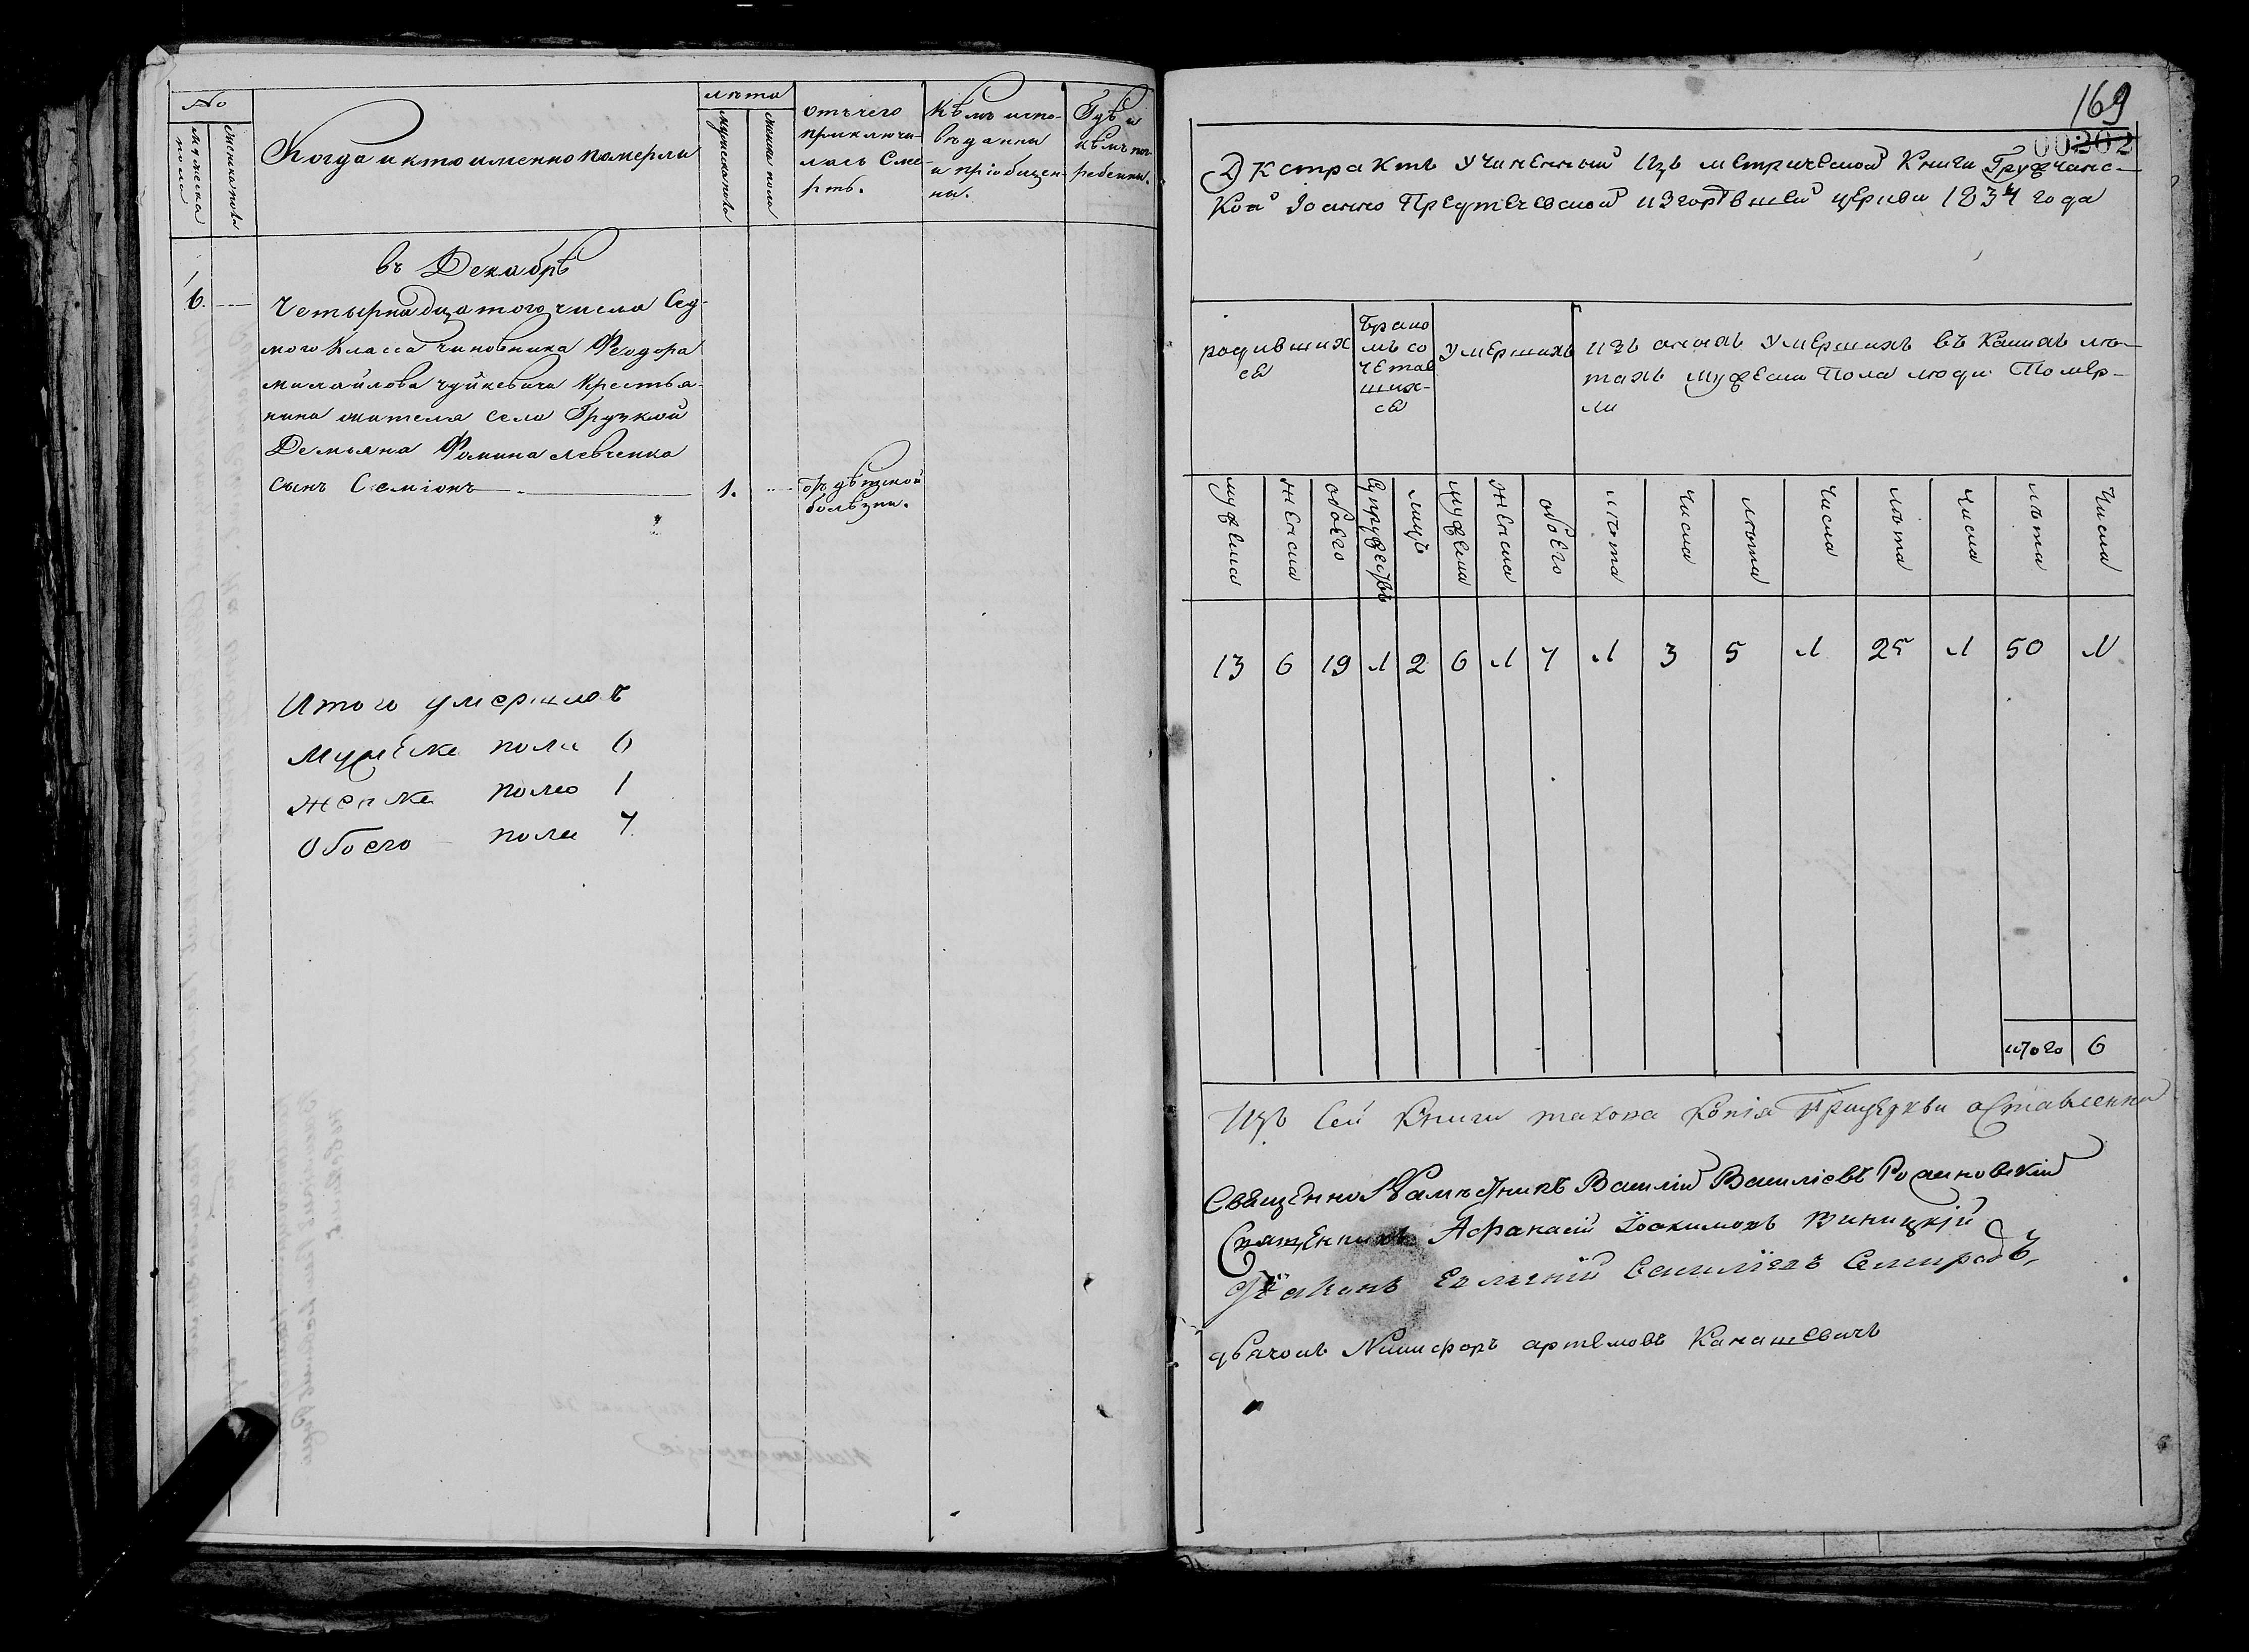 №
мужеска
пола
женска пола
Когда и кто именно померли
лѣта
мужеска пола
женска пола
отъ чего
приключи-
лась Сме-
рть.
Кѣмъ испо-
вѣданны
и пріобщен-
ны.
Гдѣ и
кѣмъ пог-
ребенны.
въ Декабрѣ
6.
Четырнадцатого числа Сед-
мого Класса Чиновника Феодора
михайлова чуйкевича Крестья-
нина жителя села Грузкой
Демьяна Фомина левченка
сынъ Семіонъ
1.
отъ дѣтской
болѣзни.
Итого умершихъ
Мужеска пола 6
женска пола 1
Обоего пола 7
169
00202
Экстрактъ учиненный Изъ метрической Книги Грузчанс-
кой Іоанно Предтечевской изгорѣвшей церкви 1834 года
родившихся
Брако
мъ со
четав
ших-
ся
умершихъ
изъ онихъ умершихъ въ Какихъ лѣ-
тахъ мужеска Пола люди Помер-
ли
мужеска
женска
обоего
Супружествъ
лицъ
мужеска
женска
обоего
лѣта
Числа
лѣта
Числа
лѣта
Числа
лѣта
Числа
13 6 19 1 2 6 1 7 1 3 5 1 25 1 50 1
итого 6
Изъ Сей Книги такова Копія При церкви оставленна
СвященноНамѣстникъ Василій Василіевъ Романовскій
Священникъ Афанасій Іоакимовъ Виницкій
Діаконъ Евгеній Василіевъ Самирадъ
дьячокъ Никифоръ артемовъ Канашевичъ